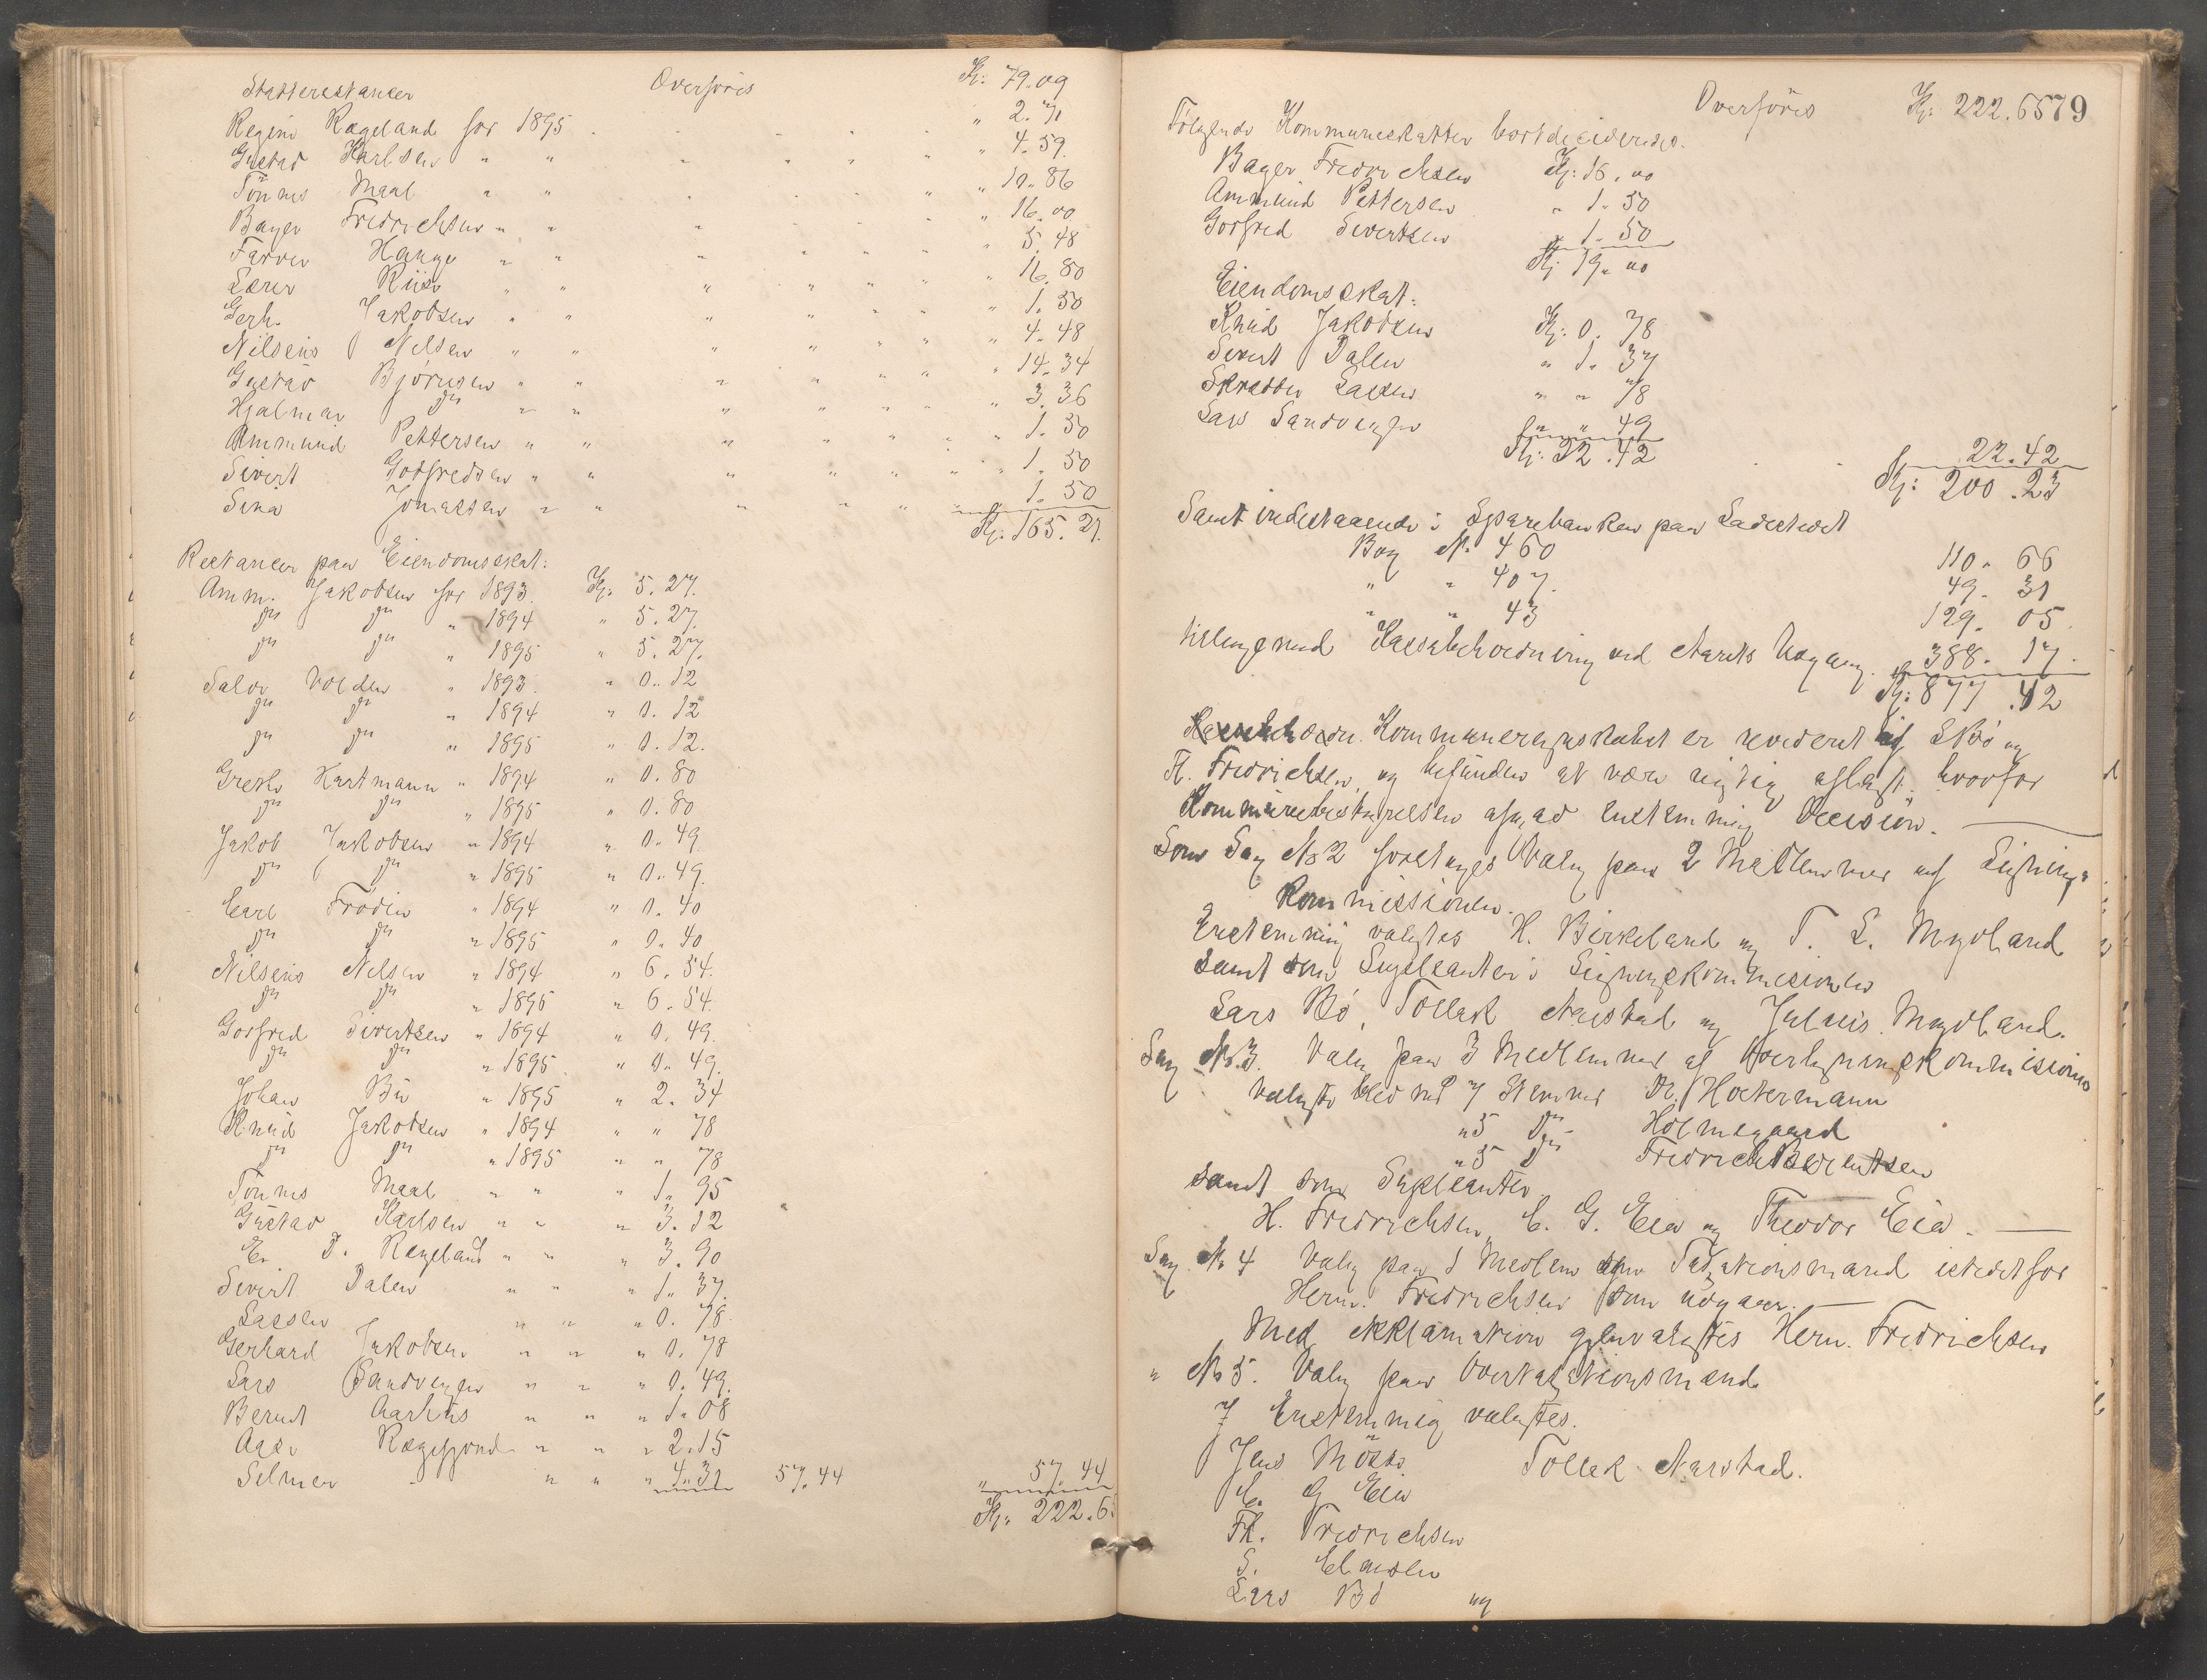 Skatterestancer Overföres Kr: 79.09
Regine Rægeland for 1895 " 2.71
Gustav Karlsen " " " 4.59
Tönnes Maal " " " 10.86
Bager Fredrichsen " " " 16.00
Farver Hauge " " " 5.48
Lærer Riise " " " 16.80
Gerh. Jakobsen " " " 1.50
Nilseus Nilsen " " " 4.48
Gustav Björnsen " " " 14.34
Hjalmar do " " " 3.36
Ammund Pettersen " " " 1.50
Sivert Godfredsen " " " 1.50
Sina Jonassen " " " 1.50
Kr: 165.21.
Restancer paa Eiendomsskat:
Amm. Jakobsen for 1893. Kr. 5.27.
do do " 1894 " 5.27.
do do " 1895 " 5.27.
Salve Volden " 1893. " 0.12
do do " 1894 " 0.12
do do " 1895 " 0.12.
Grethe Hartmann " 1894 " 0.80
do do " 1895 " 0.80
Jakob Jakobsen " 1894 " 0.49
do do " 1895 " 0.49.
Carl Frödin " 1894 " 0.40
do do " 1895 " 0.40
Nilseus Nilsen " 1894 " 6.54.
do do " 1895 " 6.54.
Godfred Sivertsen " 1894 " 0.49.
do do " 1895. " 0.49.
Johan Bö " 1895 " 2.34
Knud Jakobsen " 1894 " " 78
do do " 1895 " " 78
Tönnes Maal " " " 1.95
Gustav Karlsen " " " 3.12
E. D. Rægeland " " " 3.90
Sivert Dalen " " " 1.37.
Lassen " " " 0.78.
Gerhard Jakobsen " " " 0.78
Lars Sandvigen " " " 0.49.
Berndt Aarhus " " " 1.08
Aase Rægefjord " " " 2.15
Selmer " " " 4.31 57.44 " 57.44
Kr. 222.6
Overföres Kr: 222.65 79
Følgende Kommuneskatter bortdesideredes.
Bager Fredrichsen Kr: 16.00
Ammund Pettersen " 1.50
Godfred Sivertsen " 1.50
Kr 19.00
Eiendomsskat:
Knud Jakobsen Kr: 0.78
Sivert Dalen " 1.37
Skredder Lassen " " 78
Lars Sandvigen " " 49
Kr: 22.42 22.42
Kr: 200.23
Samt indestaaende i Sparebanken paa Ladestedet
Bog No 460 110.66
" " 407. 49.31
" " 43 129.05
tillægmed Kassebeholdning ved Aarets Udgang. " 388.17.
Kr: 877.42
Kommuneregnskabet er revideret af L Bö og
Fr. Fredrichsen, og befunden at være rigtig aflagt, hvorfor
Kommunebestyrelsen afgav enstemmig Decision.
Som Sag No 2 foretages Valg paa 2 Medlemmer af Lignings-
kommissionen.
Enstemmig valgtes H. Birkeland og T. L. Mydland
samt som Supleanter i Ligningskommissionen
Lars Bö, Tollak Aarstad og Julius Mydland.
Sag No 3. Valg paa 3 Medlemmer af Overligningskommisionen
Valgte blev med 7 Stemmer Dr. Hostermann
" 5 do Holmegaard
" 5 do Fredrick Berentsen
samt som Supleanter
H. Fredrichsen, C. G. Eia og Theodor Eia.
Sag No 4 Valg paa 1 Medlem som Taxationsmand istedetfor
Herm. Fredrichsen som udgaar.
Med akklamation gjenvalgtes Herm. Fredrichsen
" No 5. Valg paa Overtaxationsmænd
7 Enstemmig valgtes.
Jens Mösse Tollak Aarstad.
C. G Eia
Fh. Fredrichsen
S. Eliassen
Lars Bö og